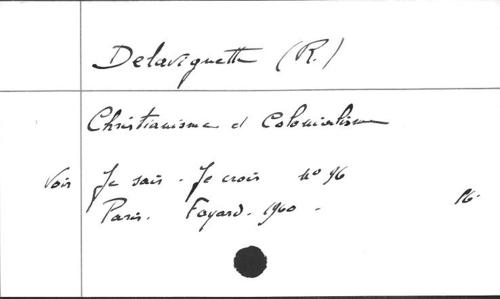 Delavignette (R.)
Christianisme et Colonialisme
Voir Je sais - Je crois no 96
Paris. Fayard. 1960.